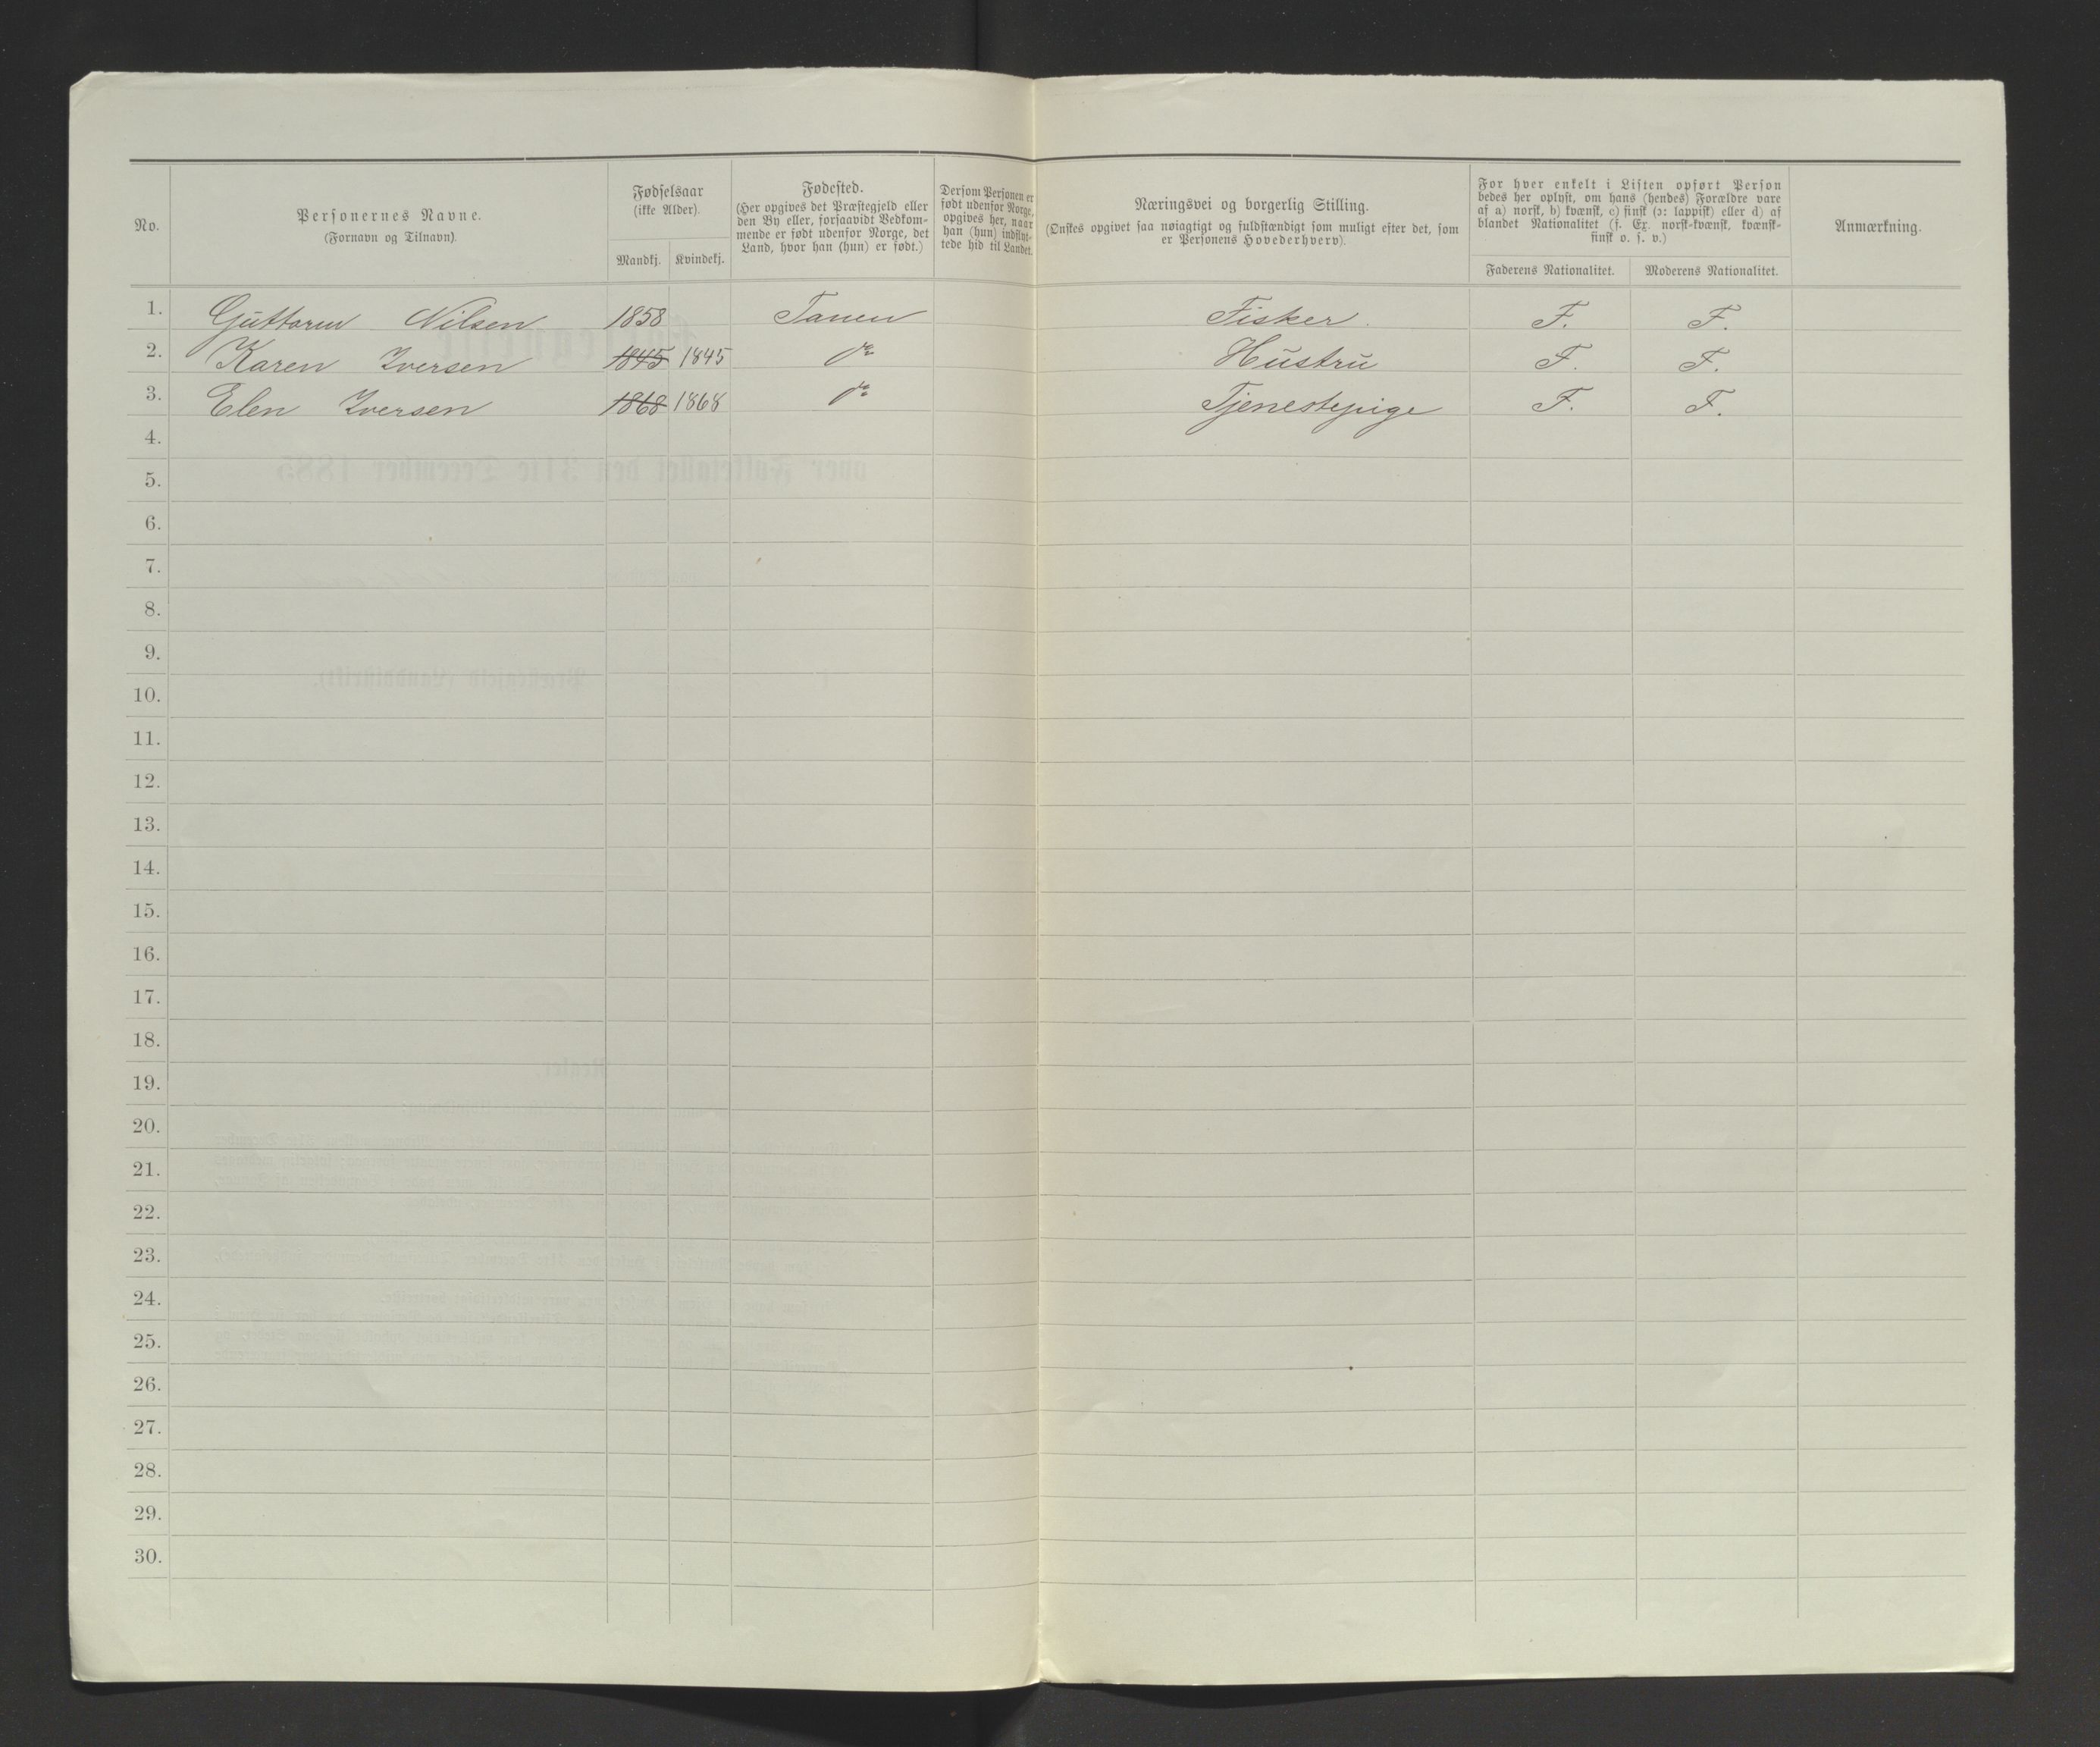 No.
Personernes Navne.
(Fornavn og Tilnavn).
Fødselsaar
(ikke Alder).
Mandkj. Kvindekj.
Fødested.
(Her opgives det Præstegjeld eller
den By eller, forsaavidt Vedkom-
mende er født udenfor Norge, det
Land, hvor han (hun) er født.)
Dersom Personen er
født udenfor Norge,
opgives her, naar
han (hun) indflyt-
tede hid til Landet.
Næringsvei og borgerlig Stilling.
(Ønskes opgivet saa nøiagtigt og fuldstændigt som muligt efter det, som
er Personens Hovederhverv).
For hver enkelt i Listen opført Person
bedes her oplyst, om hans (hendes) Forældre vare
af a) norsk, b) kvænsk, c) finsk (ɔ: lappisk) eller d) af
blandet Nationalitet (f. Ex. norsk-kvænsk, kvænsk-
finsk o. s. v.)
Faderens Nationalitet. Moderens Nationalitet.
Anmærkning.
1. Guttorm Nilsen 1858 Tanen Fisker. F. F.
2. Karen Iversen 1845 1845 do Hustru F. F.
3. Elen Iversen 1868 1868 do Tjenestepige F. F.
4.
5.
6.
7.
8.
9.
10.
11.
12.
13.
14.
15.
16.
17.
18.
19.
20.
21.
22.
23.
24.
25.
26.
27.
28.
29.
30.